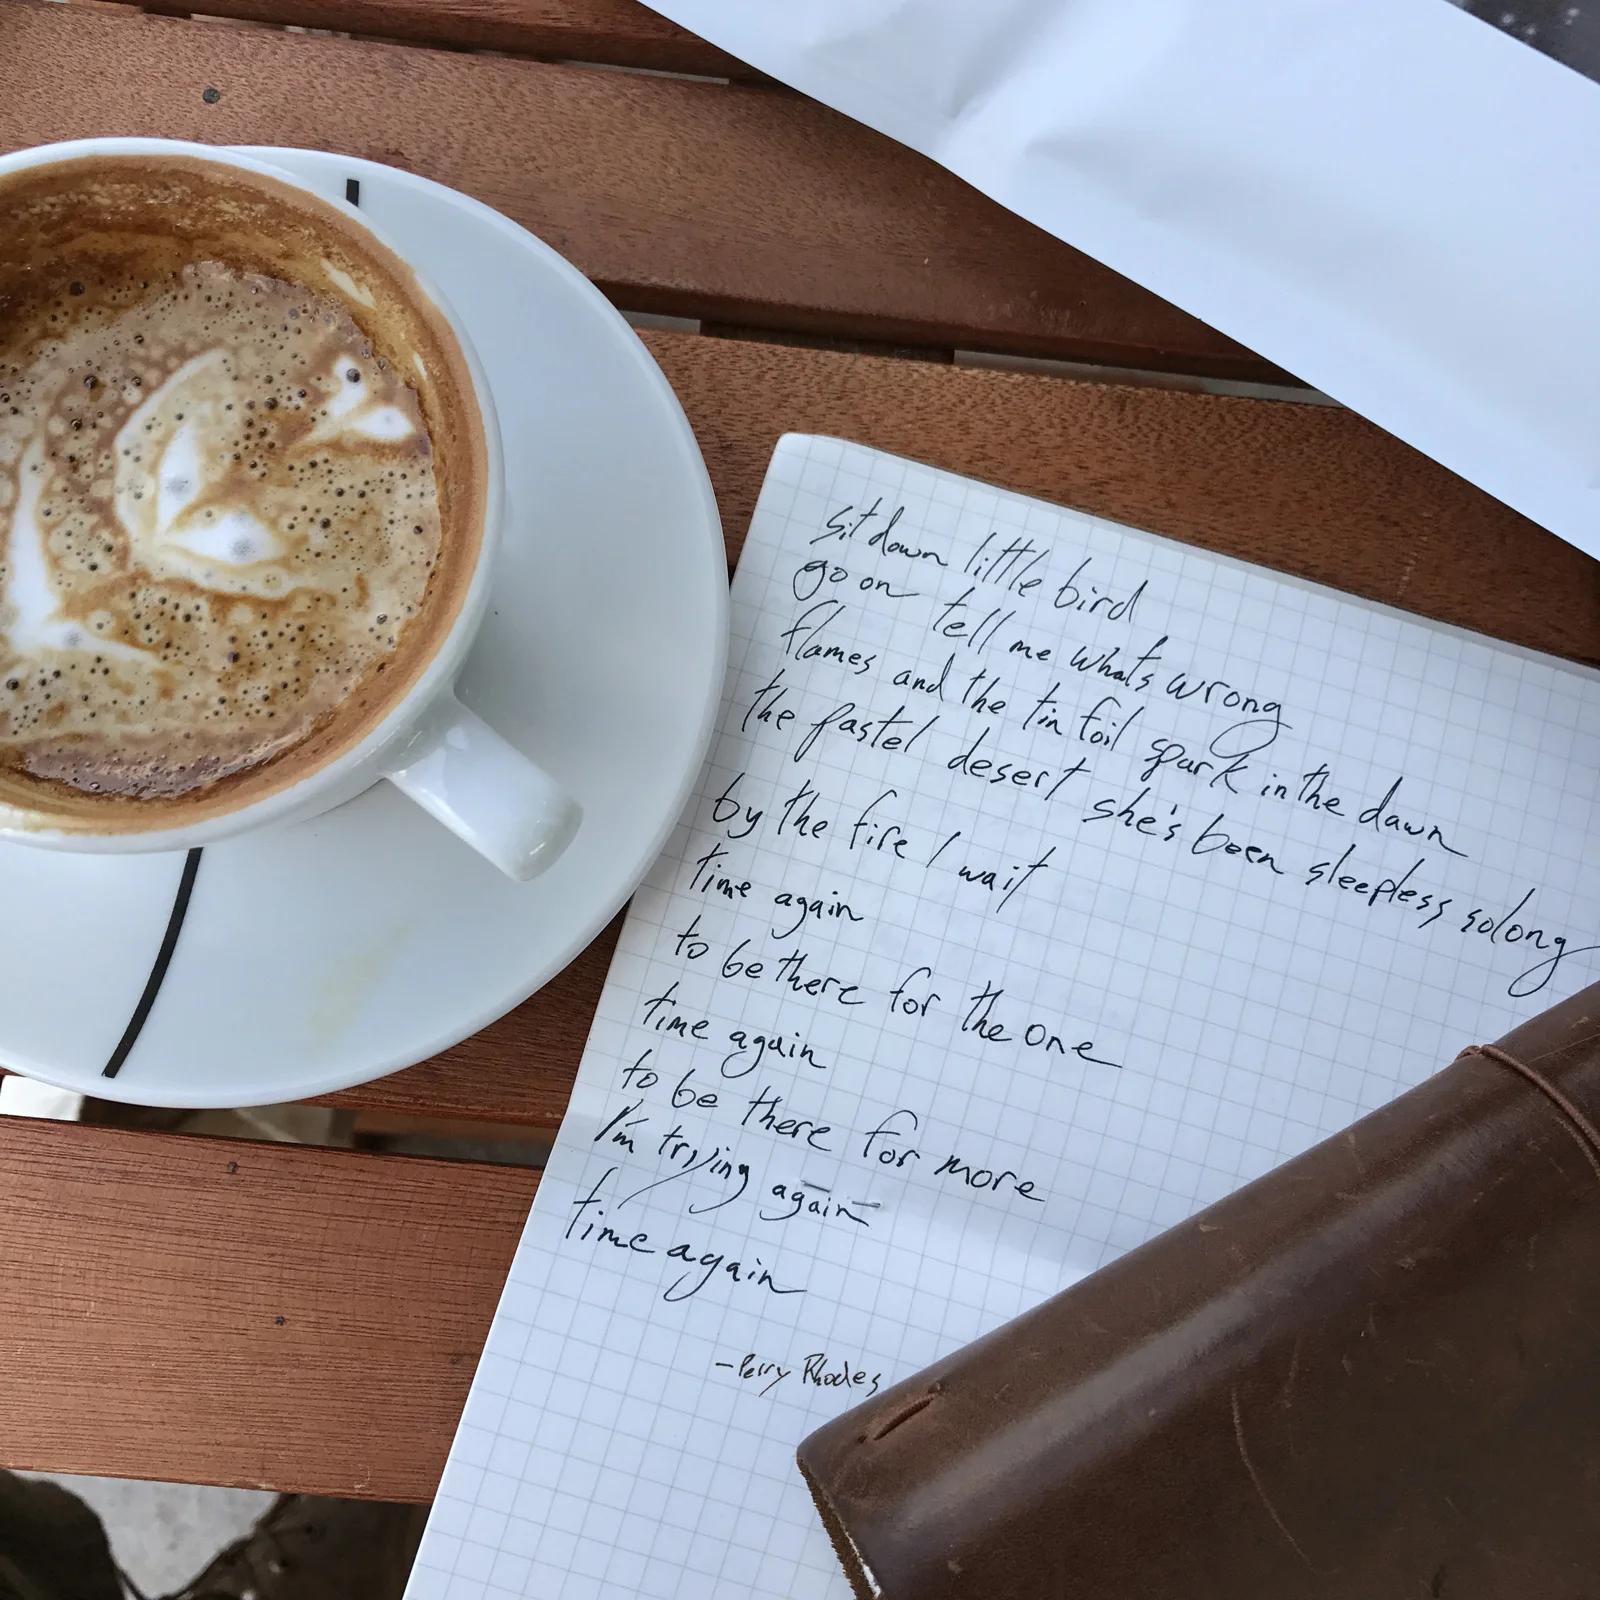 sit down little bird
go on tell me whats wrong
flames and the tin foil spark in the dawn
the pastel desert she's been sleepless solong
by the fire I wait
time again
to be there for the one
time again
to be there for more
I'm trying again
time again
-Perry Rhodes